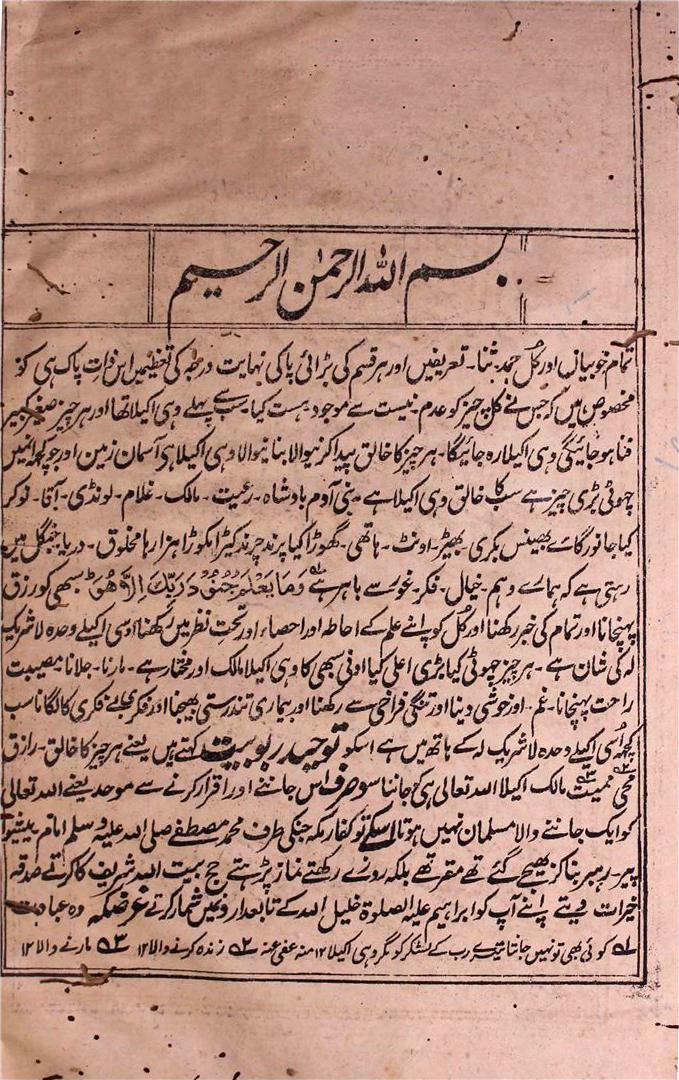 بسم اللہ الرحمٰن الرحیم
تمام خوبیاں اور کُل حمد۔ ثنا۔ تعریفیں اور ہر قسم کی بڑائی پاکی نہایت درجہ کی تعظیمیں اس ذات پاک ہی کو
مخصوص ہیں کہ جس نے کل چیز کو عدم۔ نیست سے موجود۔ ہست کیا۔ سب سے پہلے وہی اکیلا تھا اور ہر چیز صغیر کبیر
فنا ہو جائیگی وہی اکیلا رہ جائیگا۔ ہر چیز کا خالق پیدا کرنیوالا بنانیوالا وہی اکیلا ہی آسمان زمین اور جو کچھ انمیں
چھوٹی بڑی چیز ہے سب کا خالق وہی اکیلا ہے۔ بنی آدم بادشاہ۔ رعیت۔ مالک۔ غلام۔ لونڈی۔ آقا۔ نوکر
کیا جانور گائے بھینس بکری۔ بھیڑ۔ اونٹ۔ ہاتھی۔ گھوڑا کیا پرند چرند کیڑا مکوڑا ہزارہا مخلوق۔ دریا جنگل میں
رہتی ہے کہ ہمارے وہم۔ خیال۔ فکر۔ غور سے باہر ہے وَمَا یَعْلَمُ جُنُوْدَ رَبِّكَ اِلَّا هُوَ ؁۱ سبھی کو رزق
پہنچانا اور تمام کی خبر رکھنا اور کُل کو اپنے علم کے احاطہ اور احصاء اور تحت نظر میں رکھنا اوسی اکیلے وحدہ لا شریک
لہ کی شان ہے۔ ہر چیز چھوٹی کیا بڑی اعلی کیا ادنی سبھی کا وہی اکیلا مالک اور مختار ہے۔ مارنا۔ جلانا مصیبت
راحت پہنچانا۔ غم۔ اور خوشی دینا اور تنگی فراخی سے رکھنا اور بیماری تندرستی بھیجنا اور فکری بے فکری کا لگانا سب
کچھ اُسی اکیلے وحدہ لا شریک لہ کے ہاتھ میں ہے اسکو توحید ربوبیت کہتے ہیں یعنے ہر چیز کا خالق۔ رازق
محی ؁۲ ممیت ؁۳ مالک اکیلا اللہ تعالی ہی کو جاننا سو صرف اس جاننے اور اقرار کرنے سے موحد یعنے اللہ تعالی
کو ایک جاننے والا مسلمان نہیں ہوتا اسکے تو کفار مکہ جنکی طرف محمد مصطفے صلی اللہ علیہ وسلم امام پیشوا
پیر۔ رہبر بنا کر بھیجے گئے تھے مقر تھے بلکہ روزے رکھتے نماز پڑہتے حج بیت اللہ شریف کا کرتے صدقہ
خیرات دیتے اپنے آپ کو ابراہیم علیہ الصلوۃ خلیل اللہ کے تابعداروں میں شمار کرتے غرضکہ وہ عبادت
؁۱ کوئی بھی تو نہیں جانتا تیرے رب کے لشکر کو مگر وہی اکیلا ۱۲ منہ عفی عنہ ؁۲ زندہ کرنے والا ۱۲ ؁۳ مارنے والا ۱۲